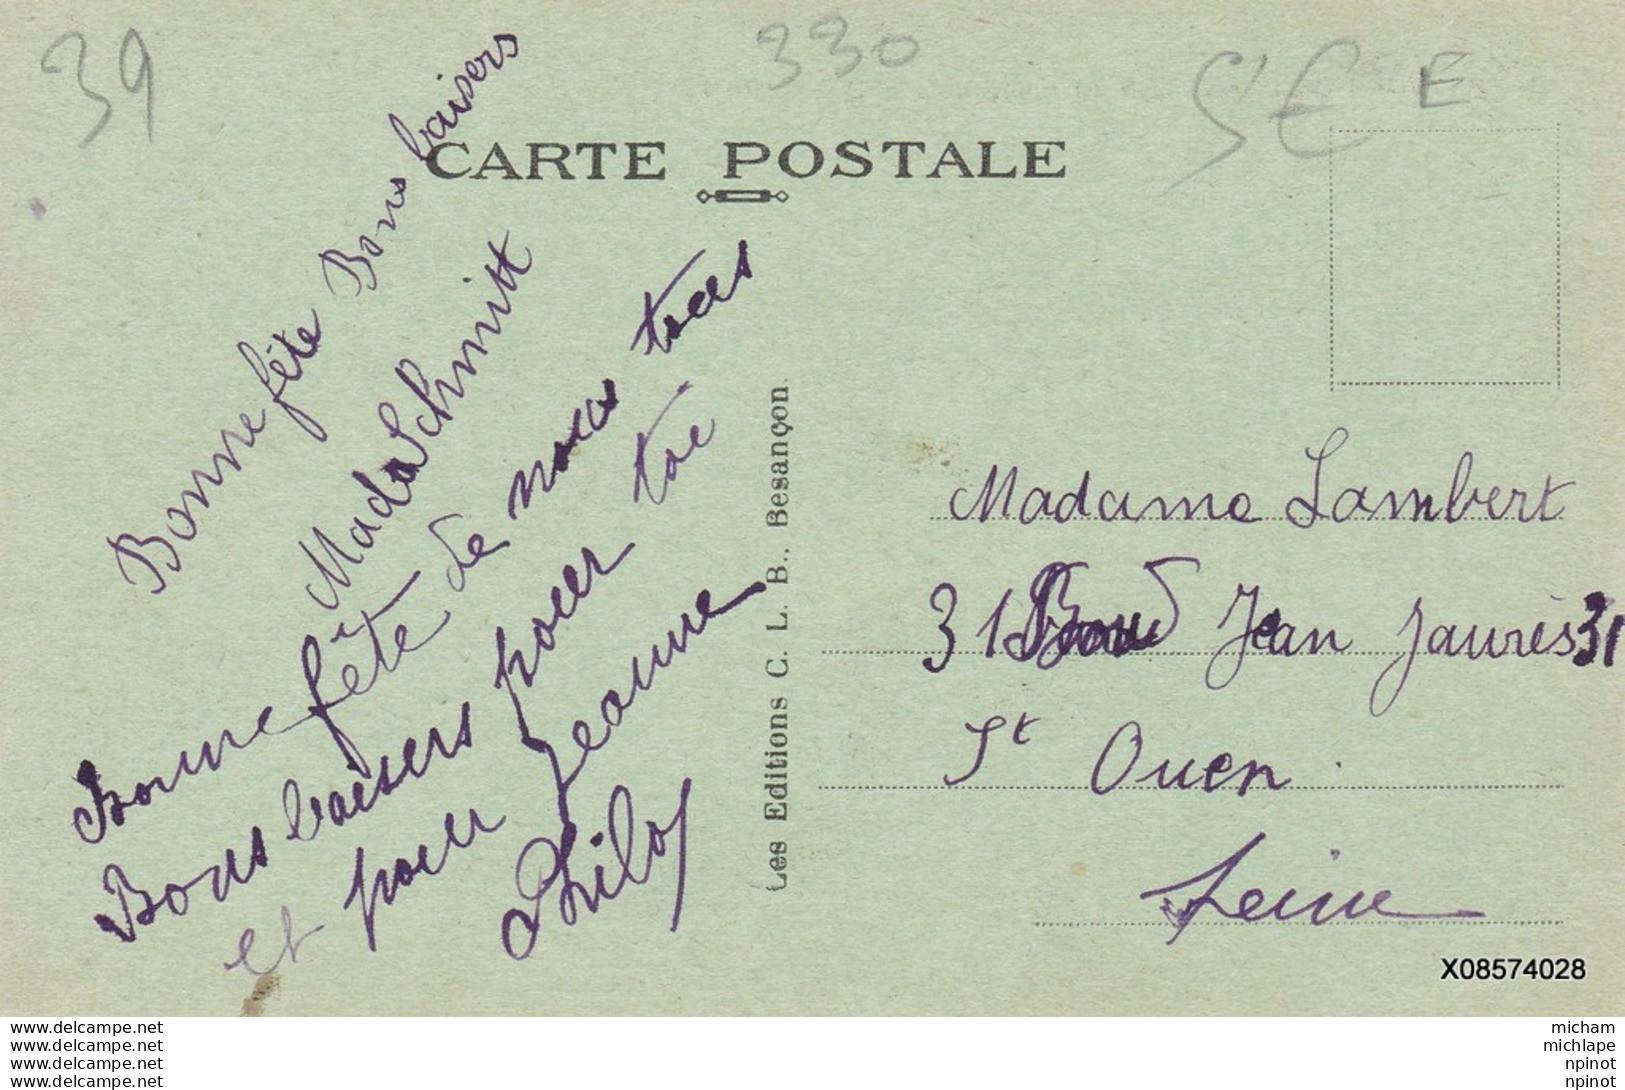 39
330
5'€
E
CARTE POSTALE
Bonne fête Bons baisers
Mado Schmitt
Bonne fête de nous tous
Bons baisers pour toi
et pour Jeanne
Les Editions C. L. B., Besançon
Madame Lambert
31 Bould Jean Jaurès 31
St Ouen
Seine
X08574028
www.delcampe.net
www.delcampe.net
www.delcampe.net
www.delcampe.net
micham
michlape
npinot
npinot